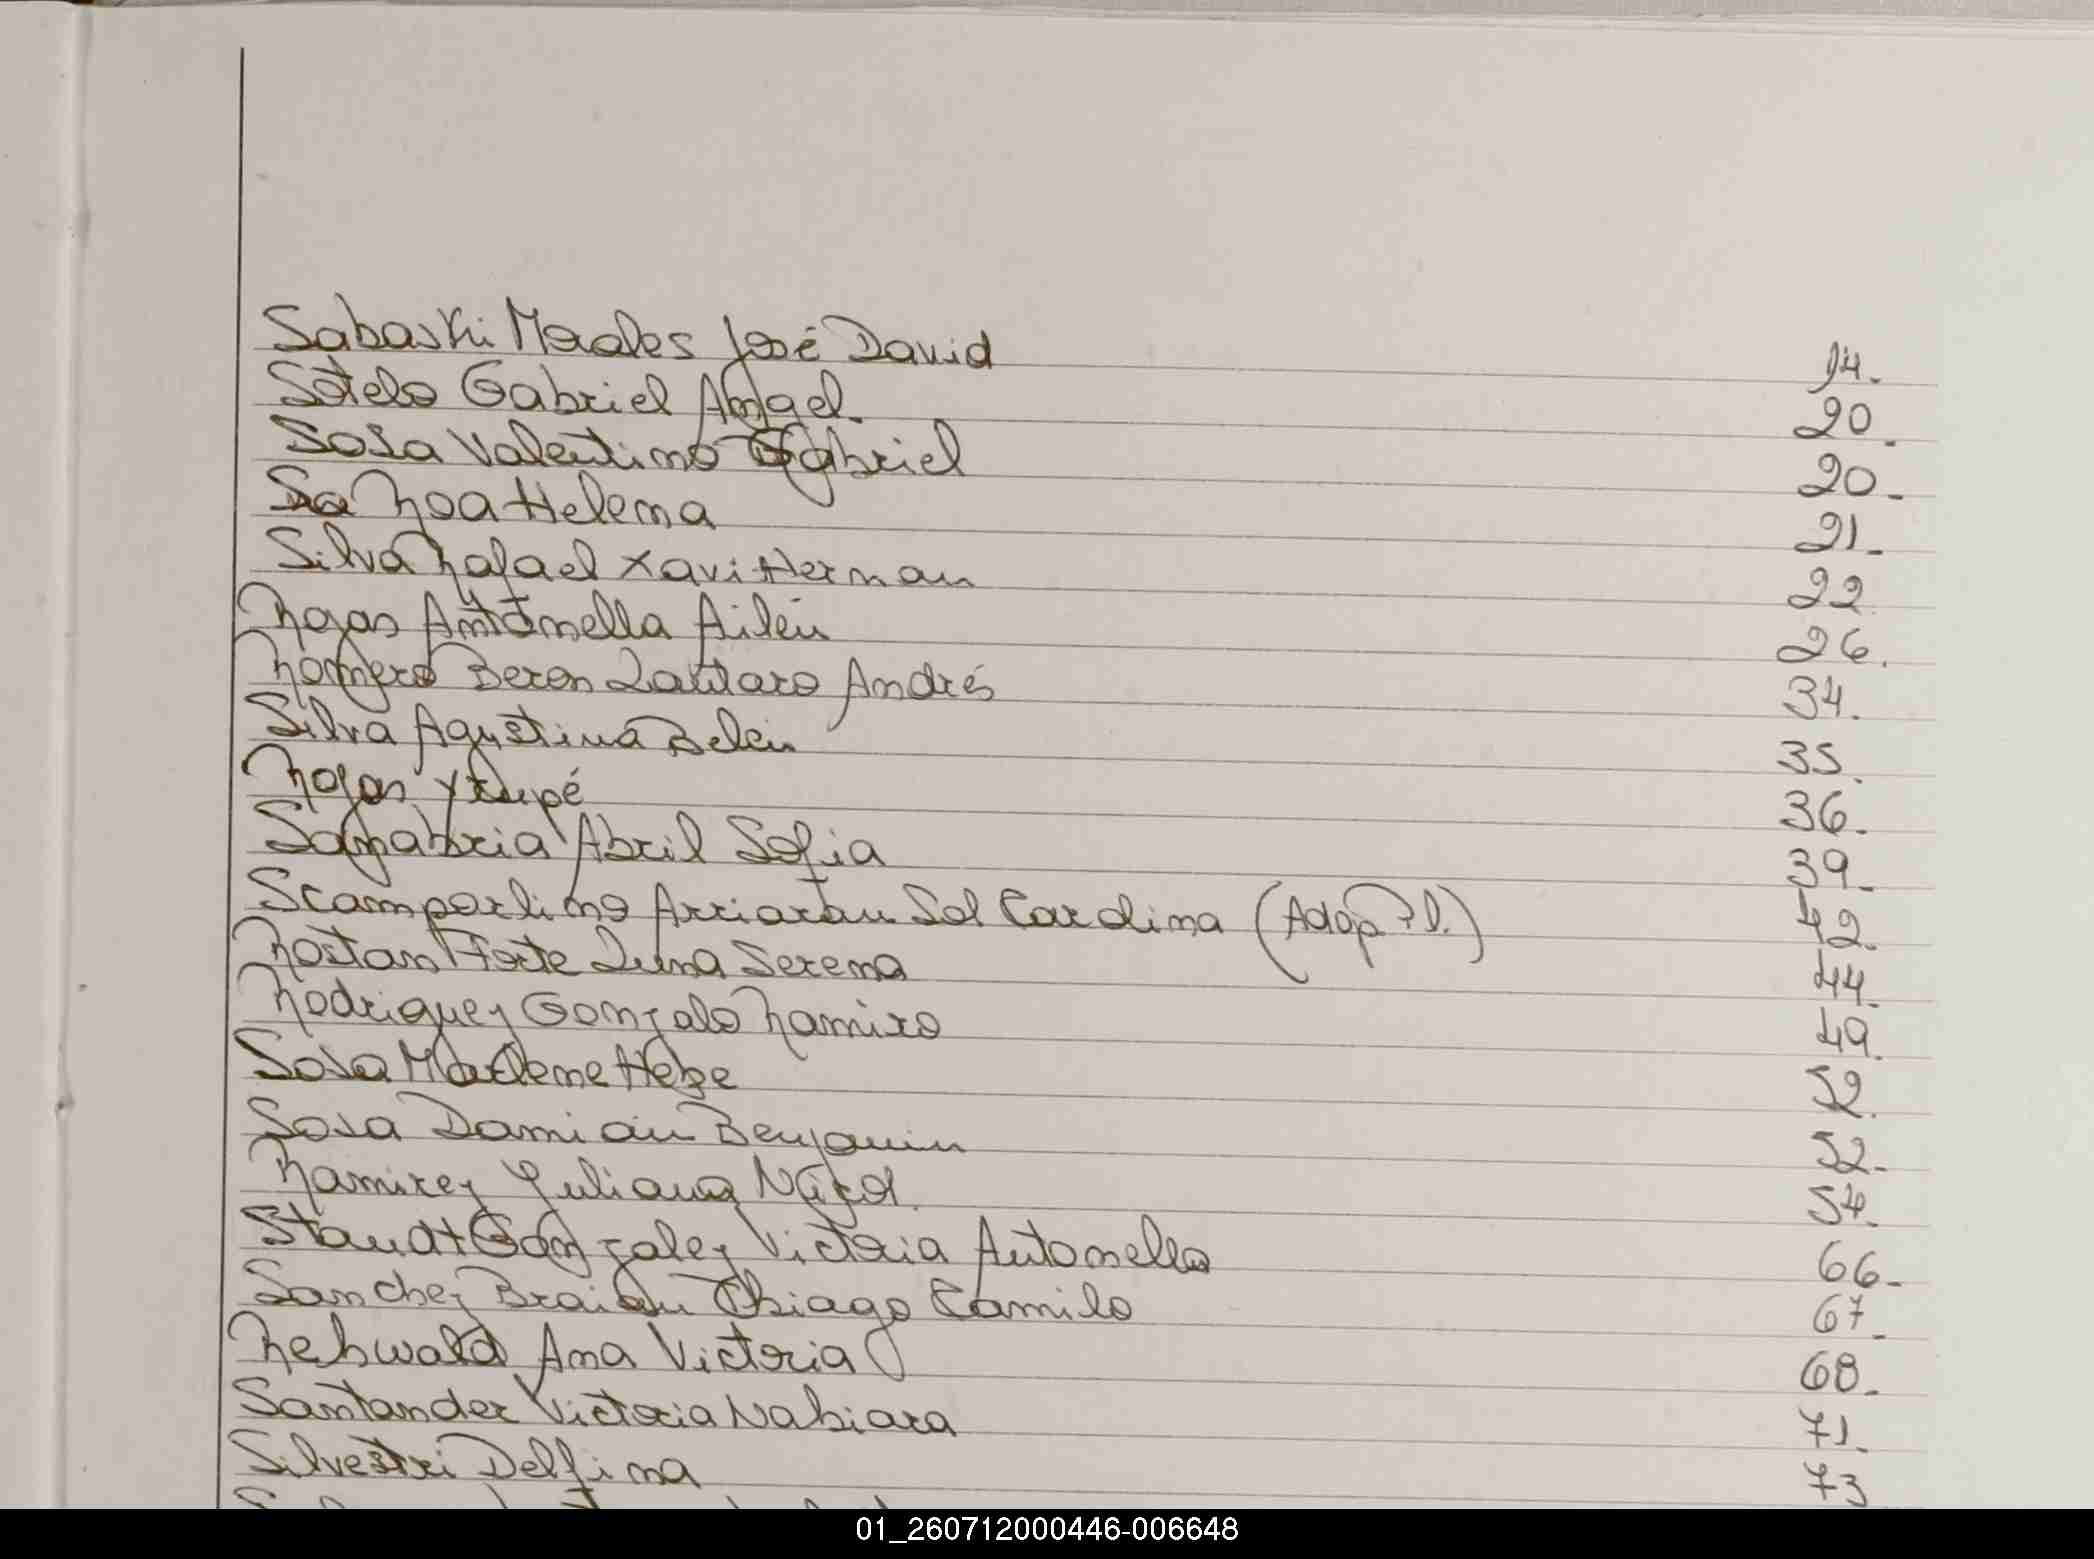 Sabaski Morales José David 14.
Sotelo Gabriel Angel 20.
Sosa Valentino Gabriel 20.
Sa Noa Helena 21.
Silva Rafael Xavi Hernan 22
Rojas Antonella Ailén 26.
Romero Beron Lautaro Andrés 34.
Silva Agustina Belén 35.
Rojas Ytupé 36.
Sanabria Abril Sofia 39.
Scamporlino Arriaran Sol Cardina (Adop Pl.) 42.
Rostan Forte Luna Serena 44.
Rodriguez Gonzalo Ramiro 49.
Sosa Marlene Hebe 52.
Sosa Damián Benjamin 52.
Ramirez Yuliana Nicol 54.
Staudt Gonzalez Victoria Antonella 66.
Sanchez Braian Thiago Camilo 67.
Rehwald Ana Victoria 68.
Santander Victoria Nahiara 71.
Silvestri Delfina 73
01_260712000446-006648